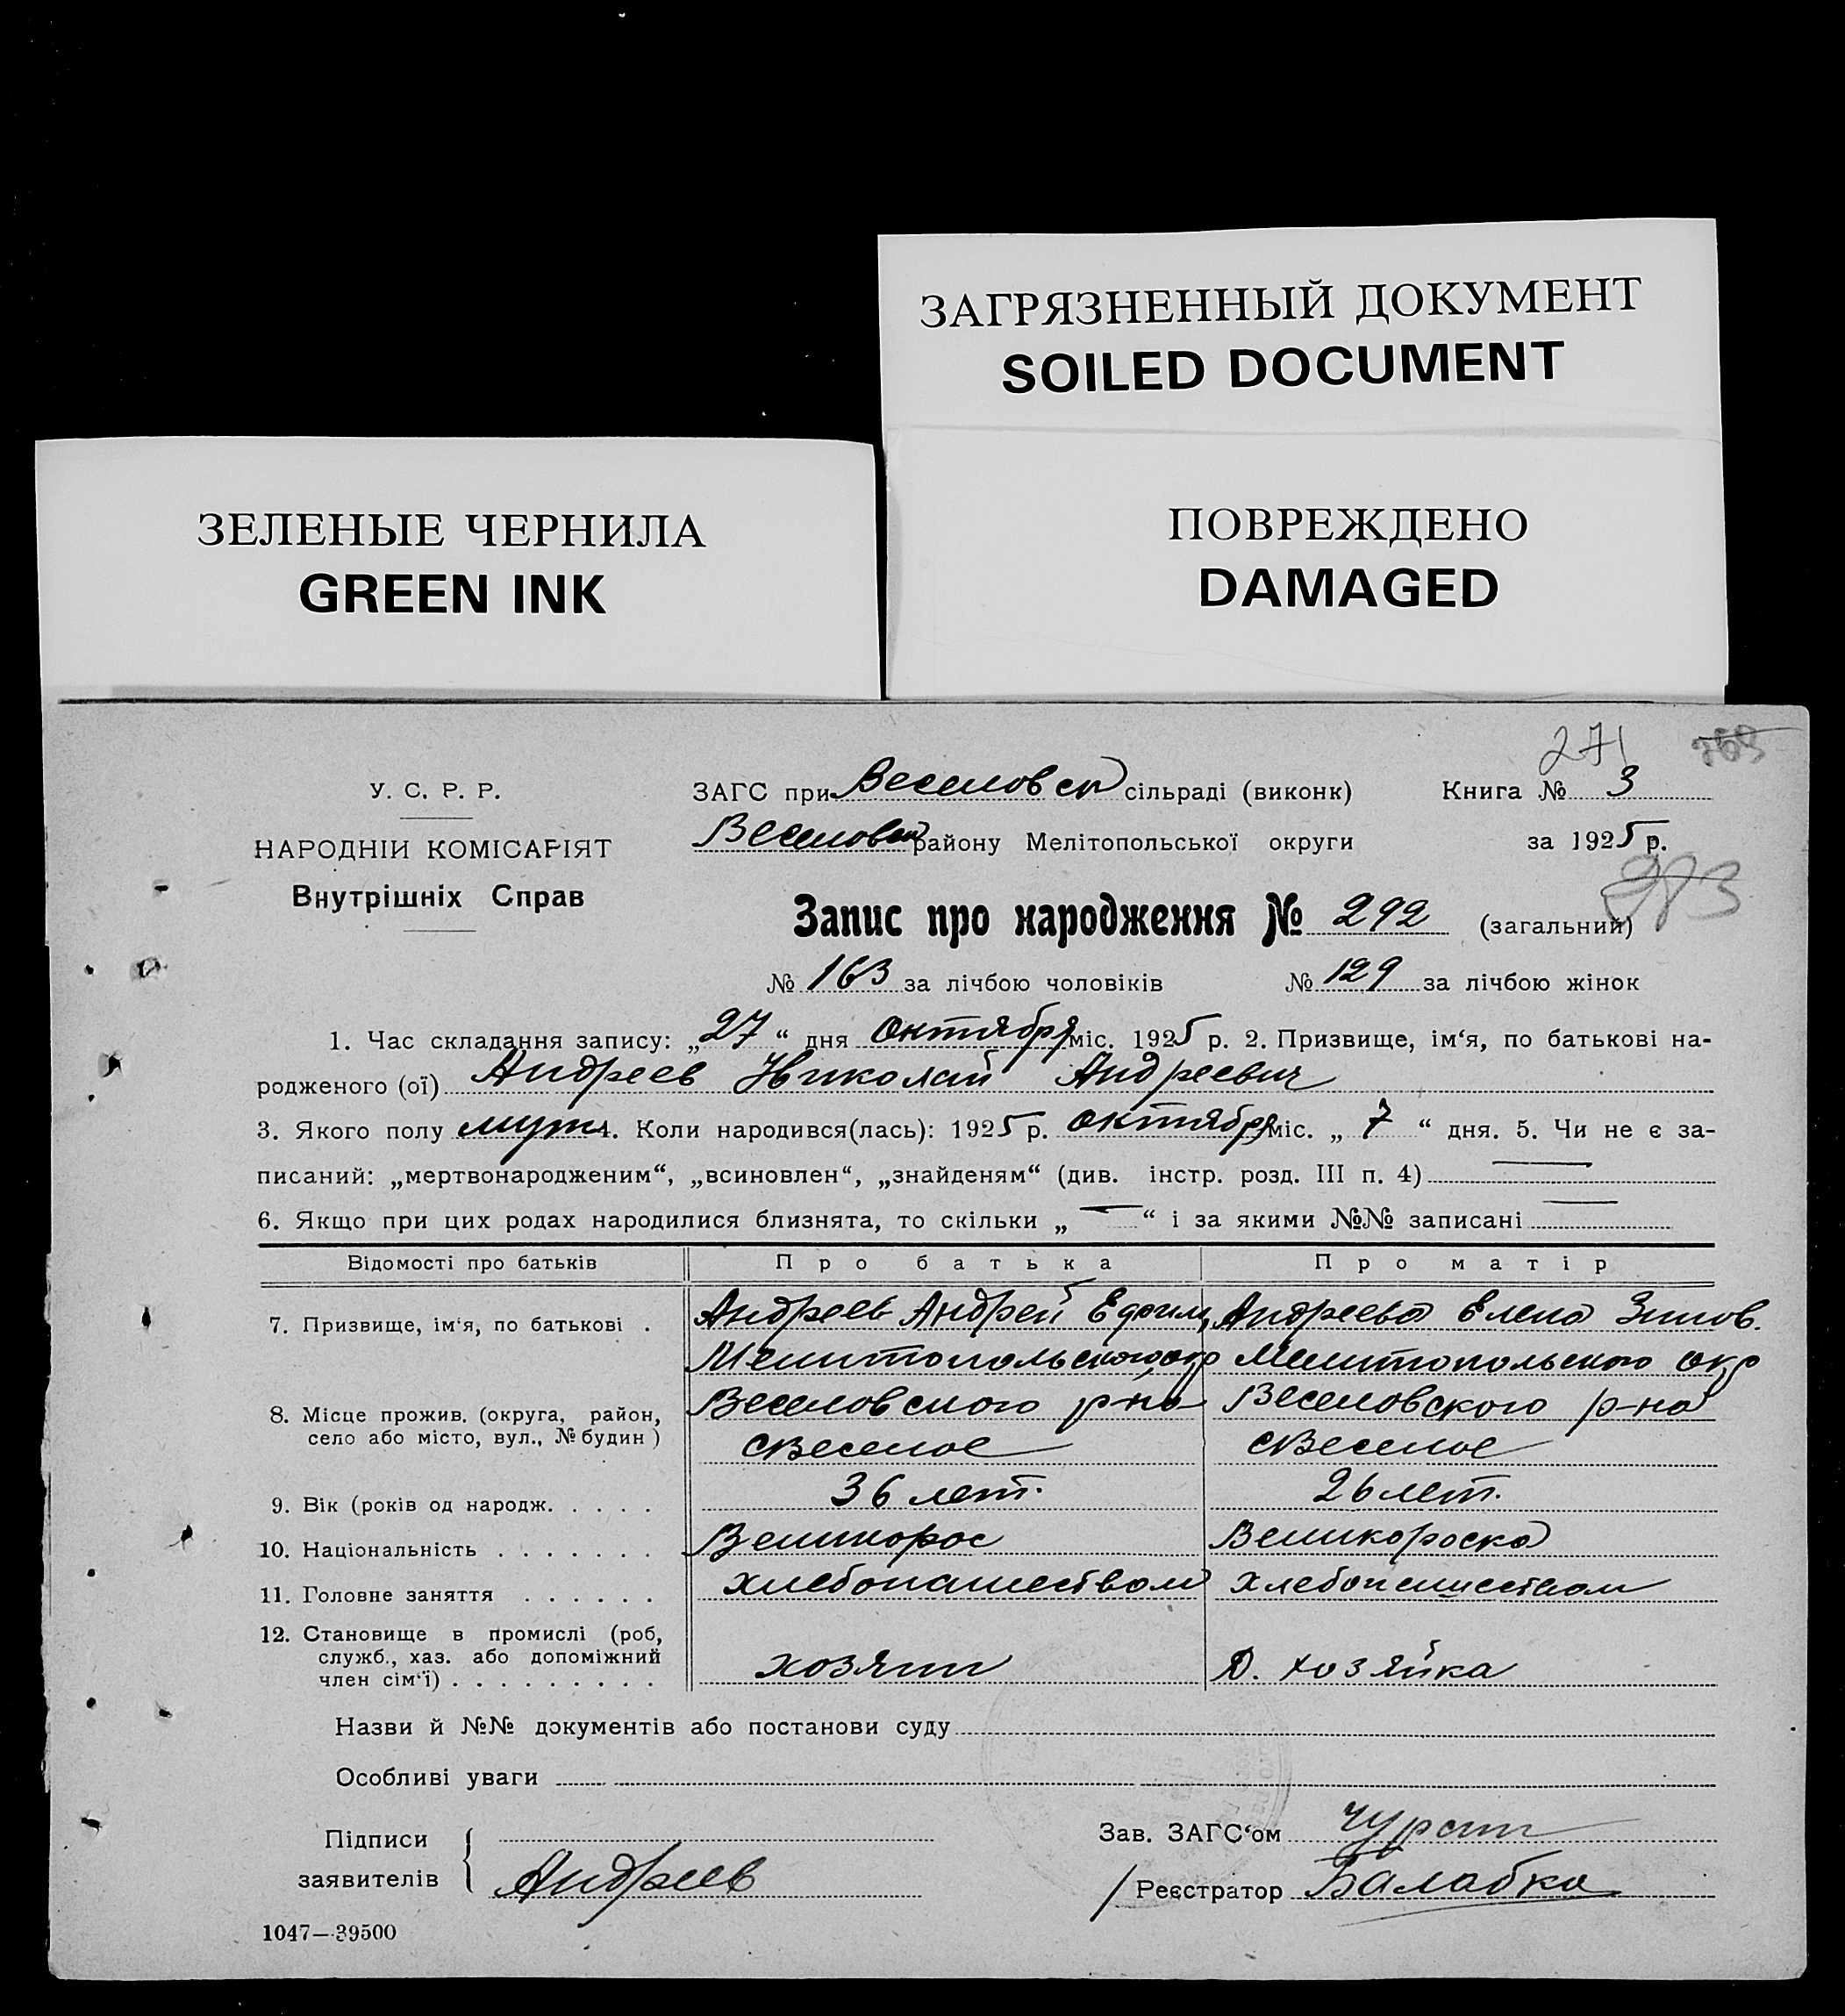 ЗАГРЯЗНЕННЫЙ ДОКУМЕНТ
SOILED DOCUMENT
ЗЕЛЕНЫЕ ЧЕРНИЛА
GREEN INK
ПОВРЕЖДЕНО
DAMAGED
271
У. С. Р. Р.
НАРОДНІЙ КОМІСАРІЯТ
Внутрішніх Справ
ЗАГС при Веселовск сільраді (виконк) Книга № 3
Веселовск району Мелітопольської округи за 1925 р.
283
Запис про народження № 292 (загальний)
№ 163 за лічбою чоловіків № 129 за лічбою жінок
1. Час складання запису: „27“ дня октября міс. 1925 р. 2. Призвище, ім‘я, по батькові на-
родженого (ої) Андреев Николай Андреевич
3. Якого полу муж 4. Коли народився(лась): 1925 р. октября міс. „7“ дня. 5. Чи не є за-
писаний: „мертвонародженим“, „всиновлен“, „знайденям“ (див. інстр. розд. III п. 4) —
6. Якщо при цих родах народилися близнята, то скільки „—“ і за якими №№ записані —
Відомості про батьків Про батька Про матір
7. Призвище, ім‘я, по батькові . Андреев Андрей Ефим, Андреева Елена Зинов.
Мелитопольского окр Мелитопольского окр
8. Місце прожив. (округа, район, село або місто, вул., № будин) Веселовского р-на Веселовского р-на
с Веселое с Веселое
9. Вік (років од народж. . . . . 36 лет. 26 лет.
10. Національність . . . . . . . Великорос Великороска
11. Головне заняття . . . . . . хлебопашеством хлебопашеством
12. Становище в промислі (роб, служб., хаз. або допоміжний член сім‘ї) . . . . . . . . . хозяин Д. хозяйка
Назви й №№ документів або постанови суду
Особливі уваги
Підписи
заявителів Андреев
Зав. ЗАГС‘ом
Реєстратор Балабка
1047—39500